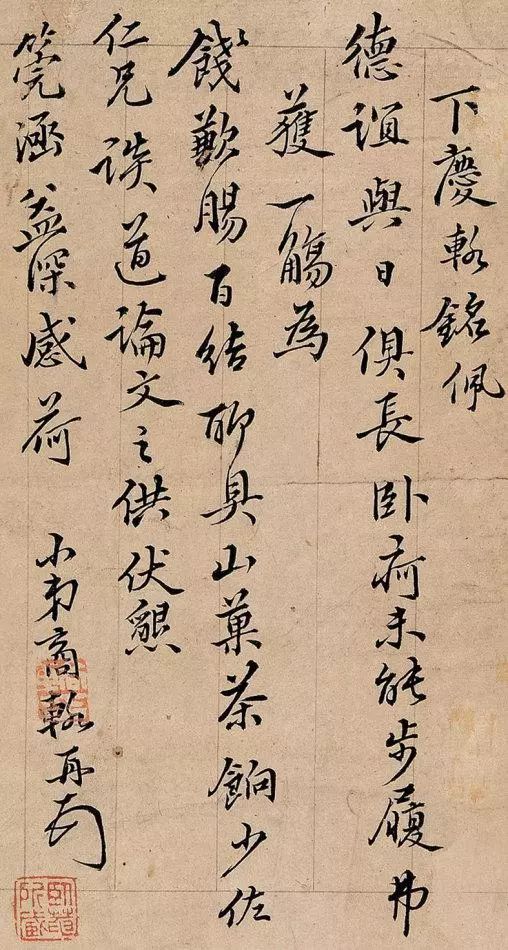 下慶輅銘佩
德誼與日俱長卧疴未能步履弗
獲一觴為
餞歉賜百結聊具山菓茶餉少佐
仁兄談道論文之供伏懇
莞涵益深感荷 小弟商輅再拜